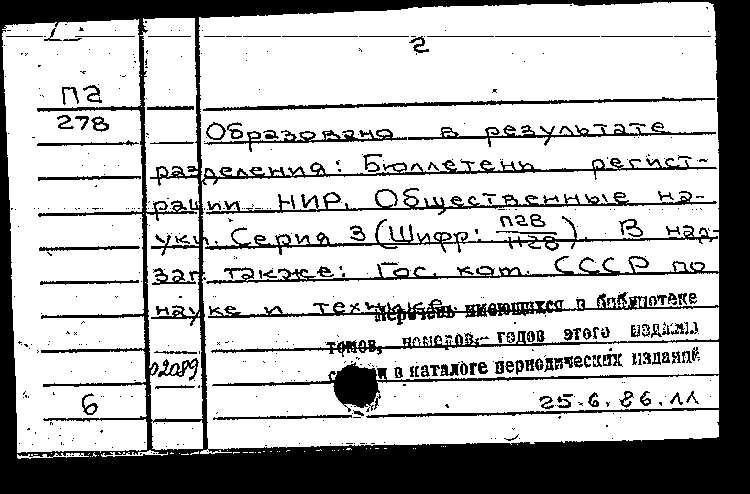 2
П2
278
Образовано в результате
разделения: Бюллетень регист-
рации НИР. Общественные на-
уки. Серия 3 (Шифр: П28
Н28). В над-
заг. также: Гос. ком. СССР по
науке и технике
Перечень имеющихся в библиотеке
томов, номеров, годов этого издания
в каталоге периодических изданий
02089
6
25.6.86.